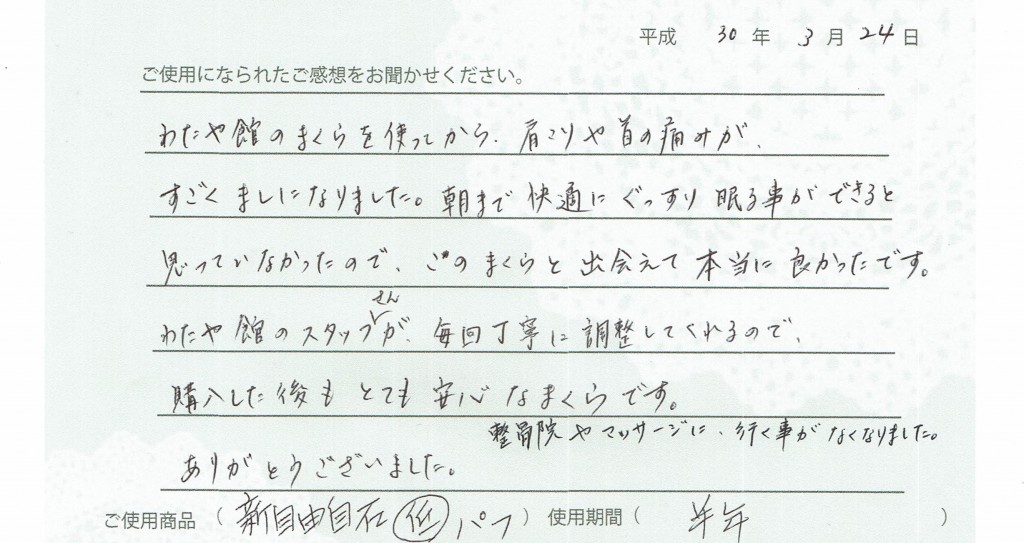 平成 30 年 3 月 24 日
ご使用になられたご感想をお聞かせください。
わたや館のまくらを使ってから、肩こりや首の痛みが、
すごくましになりました。朝まで快適にぐっすり眠る事ができると
思っていなかったので、このまくらと出会えて本当に良かったです。
さん
わたや館のスタッフが、毎回丁寧に調整してくれるので、
購入した後もとても安心なまくらです。
整骨院やマッサージに、行く事がなくなりました。
ありがとうございました。
ご使用商品 ( 新自由自在 低 パフ ) 使用期間 ( 半年 )